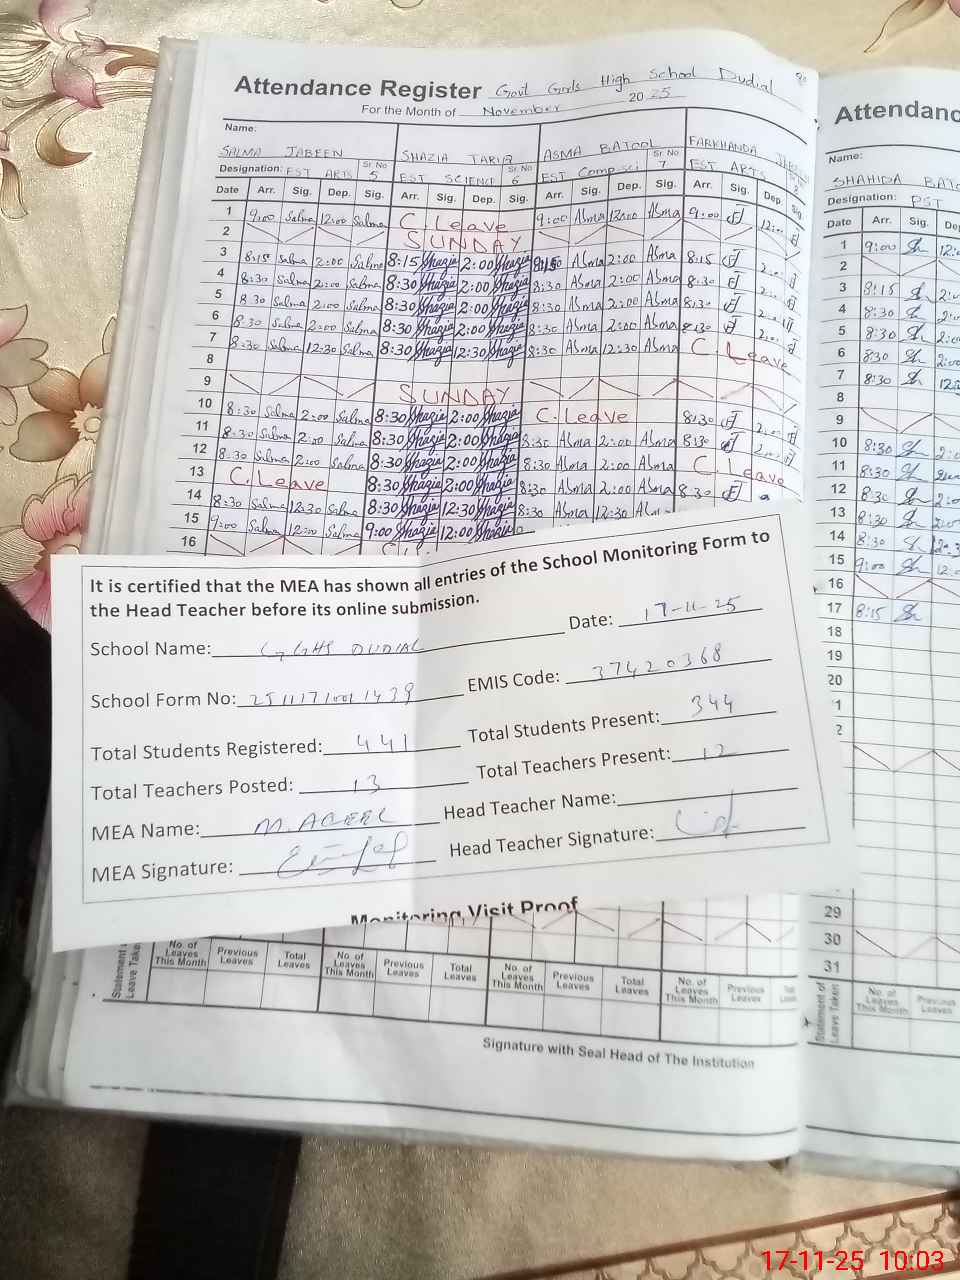 Attendance Register Govt Girls High School Dudial
For the Month of November 2025
Name:
SALMA JABEEN SHAZIA TARIQ ASMA BATOOL FARKHANDA
Designation: EST ARTS Sr. No 5 EST SCIENCE Sr. No 6 EST Comp.sci Sr. No 7 EST ARTS
Date Arr. Sig. Dep. Sig. Arr. Sig. Dep. Sig. Arr. Sig. Dep. Sig. Arr. Sig. Dep. Sig.
1 9:00 Salma 12:00 Salma C. Leave 9:00 Asma 12:00 Asma 9:00 12:00
2 SUNDAY
3 8:15 Salma 2:00 Salma 8:15 Shazia 2:00 Shazia 8:15 Asma 2:00 Asma 8:15 2:00
4 8:30 Salma 2:00 Salma 8:30 Shazia 2:00 Shazia 8:30 Asma 2:00 Asma 8:30 2:00
5 8:30 Salma 2:00 Salma 8:30 Shazia 2:00 Shazia 8:30 Asma 2:00 Asma 8:30 2:00
6 8:30 Salma 2:00 Salma 8:30 Shazia 2:00 Shazia 8:30 Asma 2:00 Asma 8:30 2:00
7 8:30 Salma 12:30 Salma 8:30 Shazia 12:30 Shazia 8:30 Asma 12:30 Asma C. Leave
8
9 SUNDAY
10 8:30 Salma 2:00 Salma 8:30 Shazia 2:00 Shazia C. Leave 8:30
11 8:30 Salma 2:00 Salma 8:30 Shazia 2:00 Shazia 8:30 Asma 2:00 Asma 8:30
12 8:30 Salma 2:00 Salma 8:30 Shazia 2:00 Shazia 8:30 Asma 2:00 Asma C. Leave
13 C. Leave 8:30 Shazia 2:00 Shazia 8:30 Asma 2:00 Asma 8:30
14 8:30 Salma 12:30 Salma 8:30 Shazia 12:30 Shazia 8:30 Asma 12:30 Asma
15 9:00 Salma 12:00 Salma 9:00 Shazia 12:00 Shazia
16
It is certified that the MEA has shown all entries of the School Monitoring Form to
the Head Teacher before its online submission.
School Name: GGHS DUDIAL Date: 17-11-25
School Form No: EMIS Code: 37420368
Total Students Registered: 441 Total Students Present: 344
Total Teachers Posted: 13 Total Teachers Present: 12
MEA Name: Head Teacher Name:
MEA Signature: Head Teacher Signature:
Monitoring Visit Proof
Statement of Leave Taken
No. of Leaves This Month Previous Leaves Total Leaves No. of Leaves This Month Previous Leaves Total Leaves No. of Leaves This Month Previous Leaves Total Leaves No. of Leaves This Month Previous Leaves
Signature with Seal Head of The Institution
Attendanc
Name:
SHAHIDA BATO
Designation: PST
Date Arr. Sig. Dep
1 9:00 Sh 12:
2
3 8:15 Sh
4 8:30 Sh
5 8:30 Sh
6 8:30 Sh 2:00
7 8:30 Sh
8
9
10 8:30 Sh
11 8:30 Sh
12 8:30 Sh
13 8:30 Sh
14 8:30 Sh
15 9:00 Sh 12:
16
17 8:15 Sh
18
19
20
29
30
31
Statement of Leave Taken
No. of Leaves This Month Previous Leaves
17-11-25 10:03